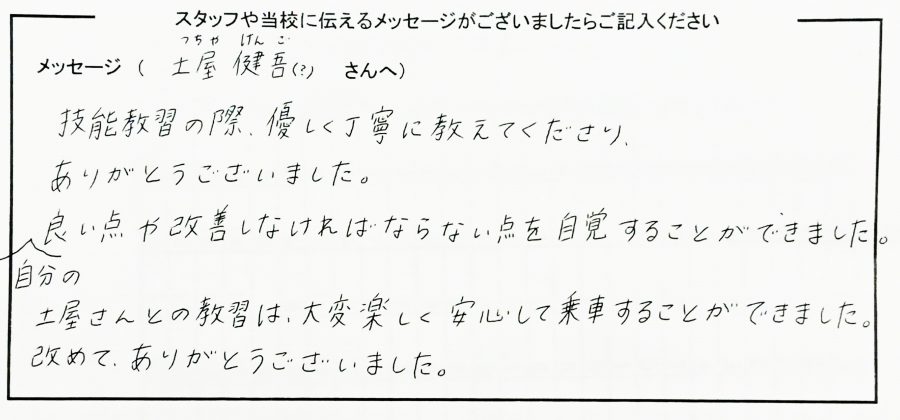 スタッフや当校に伝えるメッセージがございましたらご記入ください
つちや けんご
メッセージ ( 土屋 健吾(?) さんへ)
技能教習の際、優しく丁寧に教えてくださり、
ありがとうございました。
良い点や改善しなければならない点を自覚することができました。
自分の
土屋さんとの教習は、大変楽しく安心して乗車することができました。
改めて、ありがとうございました。